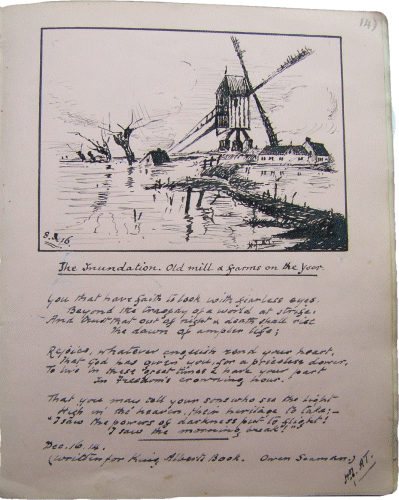 149
S.S. 16.
The Inundation. Old mill & farms on the Yser.
You that have faith to look with fearless eyes
Beyond the tragedy of a world at strife,
And trust that out of night & death shall rise
the dawn of ampler life;
Rejoice, whatever anguish rend your heart,
That God has given you, for a priceless dower,
To live in these great times & have your part
In Freedom's crowning hour!
That you may tell your sons who see the light
High in the heaven, their heritage to take;—
"I saw the powers of darkness put to flight!
I saw the morning break!"
Dec. 16. 14.
(written for King Albert's Book. Owen Seaman.)